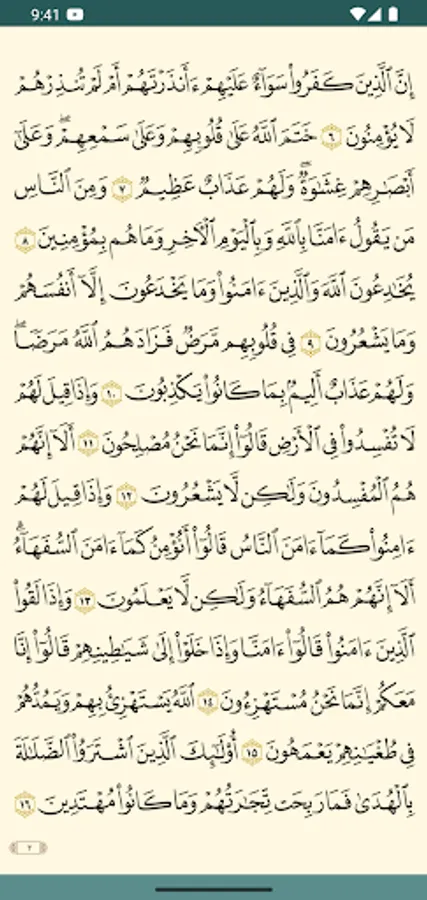 9:41
إِنَّ ٱلَّذِينَ كَفَرُوا۟ سَوَآءٌ عَلَيْهِمْ ءَأَنذَرْتَهُمْ أَمْ لَمْ تُنذِرْهُمْ
لَا يُؤْمِنُونَ ٦ خَتَمَ ٱللَّهُ عَلَىٰ قُلُوبِهِمْ وَعَلَىٰ سَمْعِهِمْ ۖ وَعَلَىٰٓ
أَبْصَـٰرِهِمْ غِشَـٰوَةٌ ۖ وَلَهُمْ عَذَابٌ عَظِيمٌ ٧ وَمِنَ ٱلنَّاسِ
مَن يَقُولُ ءَامَنَّا بِٱللَّهِ وَبِٱلْيَوْمِ ٱلْـَٔاخِرِ وَمَا هُم بِمُؤْمِنِينَ ٨
يُخَـٰدِعُونَ ٱللَّهَ وَٱلَّذِينَ ءَامَنُوا۟ وَمَا يَخْدَعُونَ إِلَّآ أَنفُسَهُمْ
وَمَا يَشْعُرُونَ ٩ فِى قُلُوبِهِم مَّرَضٌ فَزَادَهُمُ ٱللَّهُ مَرَضًا ۖ
وَلَهُمْ عَذَابٌ أَلِيمٌۢ بِمَا كَانُوا۟ يَكْذِبُونَ ١٠ وَإِذَا قِيلَ لَهُمْ
لَا تُفْسِدُوا۟ فِى ٱلْأَرْضِ قَالُوٓا۟ إِنَّمَا نَحْنُ مُصْلِحُونَ ١١ أَلَآ إِنَّهُمْ
هُمُ ٱلْمُفْسِدُونَ وَلَـٰكِن لَّا يَشْعُرُونَ ١٢ وَإِذَا قِيلَ لَهُمْ
ءَامِنُوا۟ كَمَآ ءَامَنَ ٱلنَّاسُ قَالُوٓا۟ أَنُؤْمِنُ كَمَآ ءَامَنَ ٱلسُّفَهَآءُ ۗ
أَلَآ إِنَّهُمْ هُمُ ٱلسُّفَهَآءُ وَلَـٰكِن لَّا يَعْلَمُونَ ١٣ وَإِذَا لَقُوا۟
ٱلَّذِينَ ءَامَنُوا۟ قَالُوٓا۟ ءَامَنَّا وَإِذَا خَلَوْا۟ إِلَىٰ شَيَـٰطِينِهِمْ قَالُوٓا۟ إِنَّا
مَعَكُمْ إِنَّمَا نَحْنُ مُسْتَهْزِءُونَ ١٤ ٱللَّهُ يَسْتَهْزِئُ بِهِمْ وَيَمُدُّهُمْ
فِى طُغْيَـٰنِهِمْ يَعْمَهُونَ ١٥ أُو۟لَـٰٓئِكَ ٱلَّذِينَ ٱشْتَرَوُا۟ ٱلضَّلَـٰلَةَ
بِٱلْهُدَىٰ فَمَا رَبِحَت تِّجَـٰرَتُهُمْ وَمَا كَانُوا۟ مُهْتَدِينَ ١٦
٢